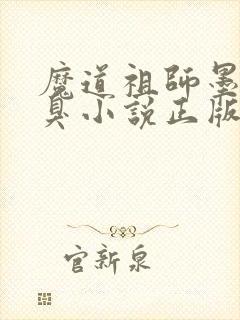 魔道祖師墨
臭小說正版
官新泉